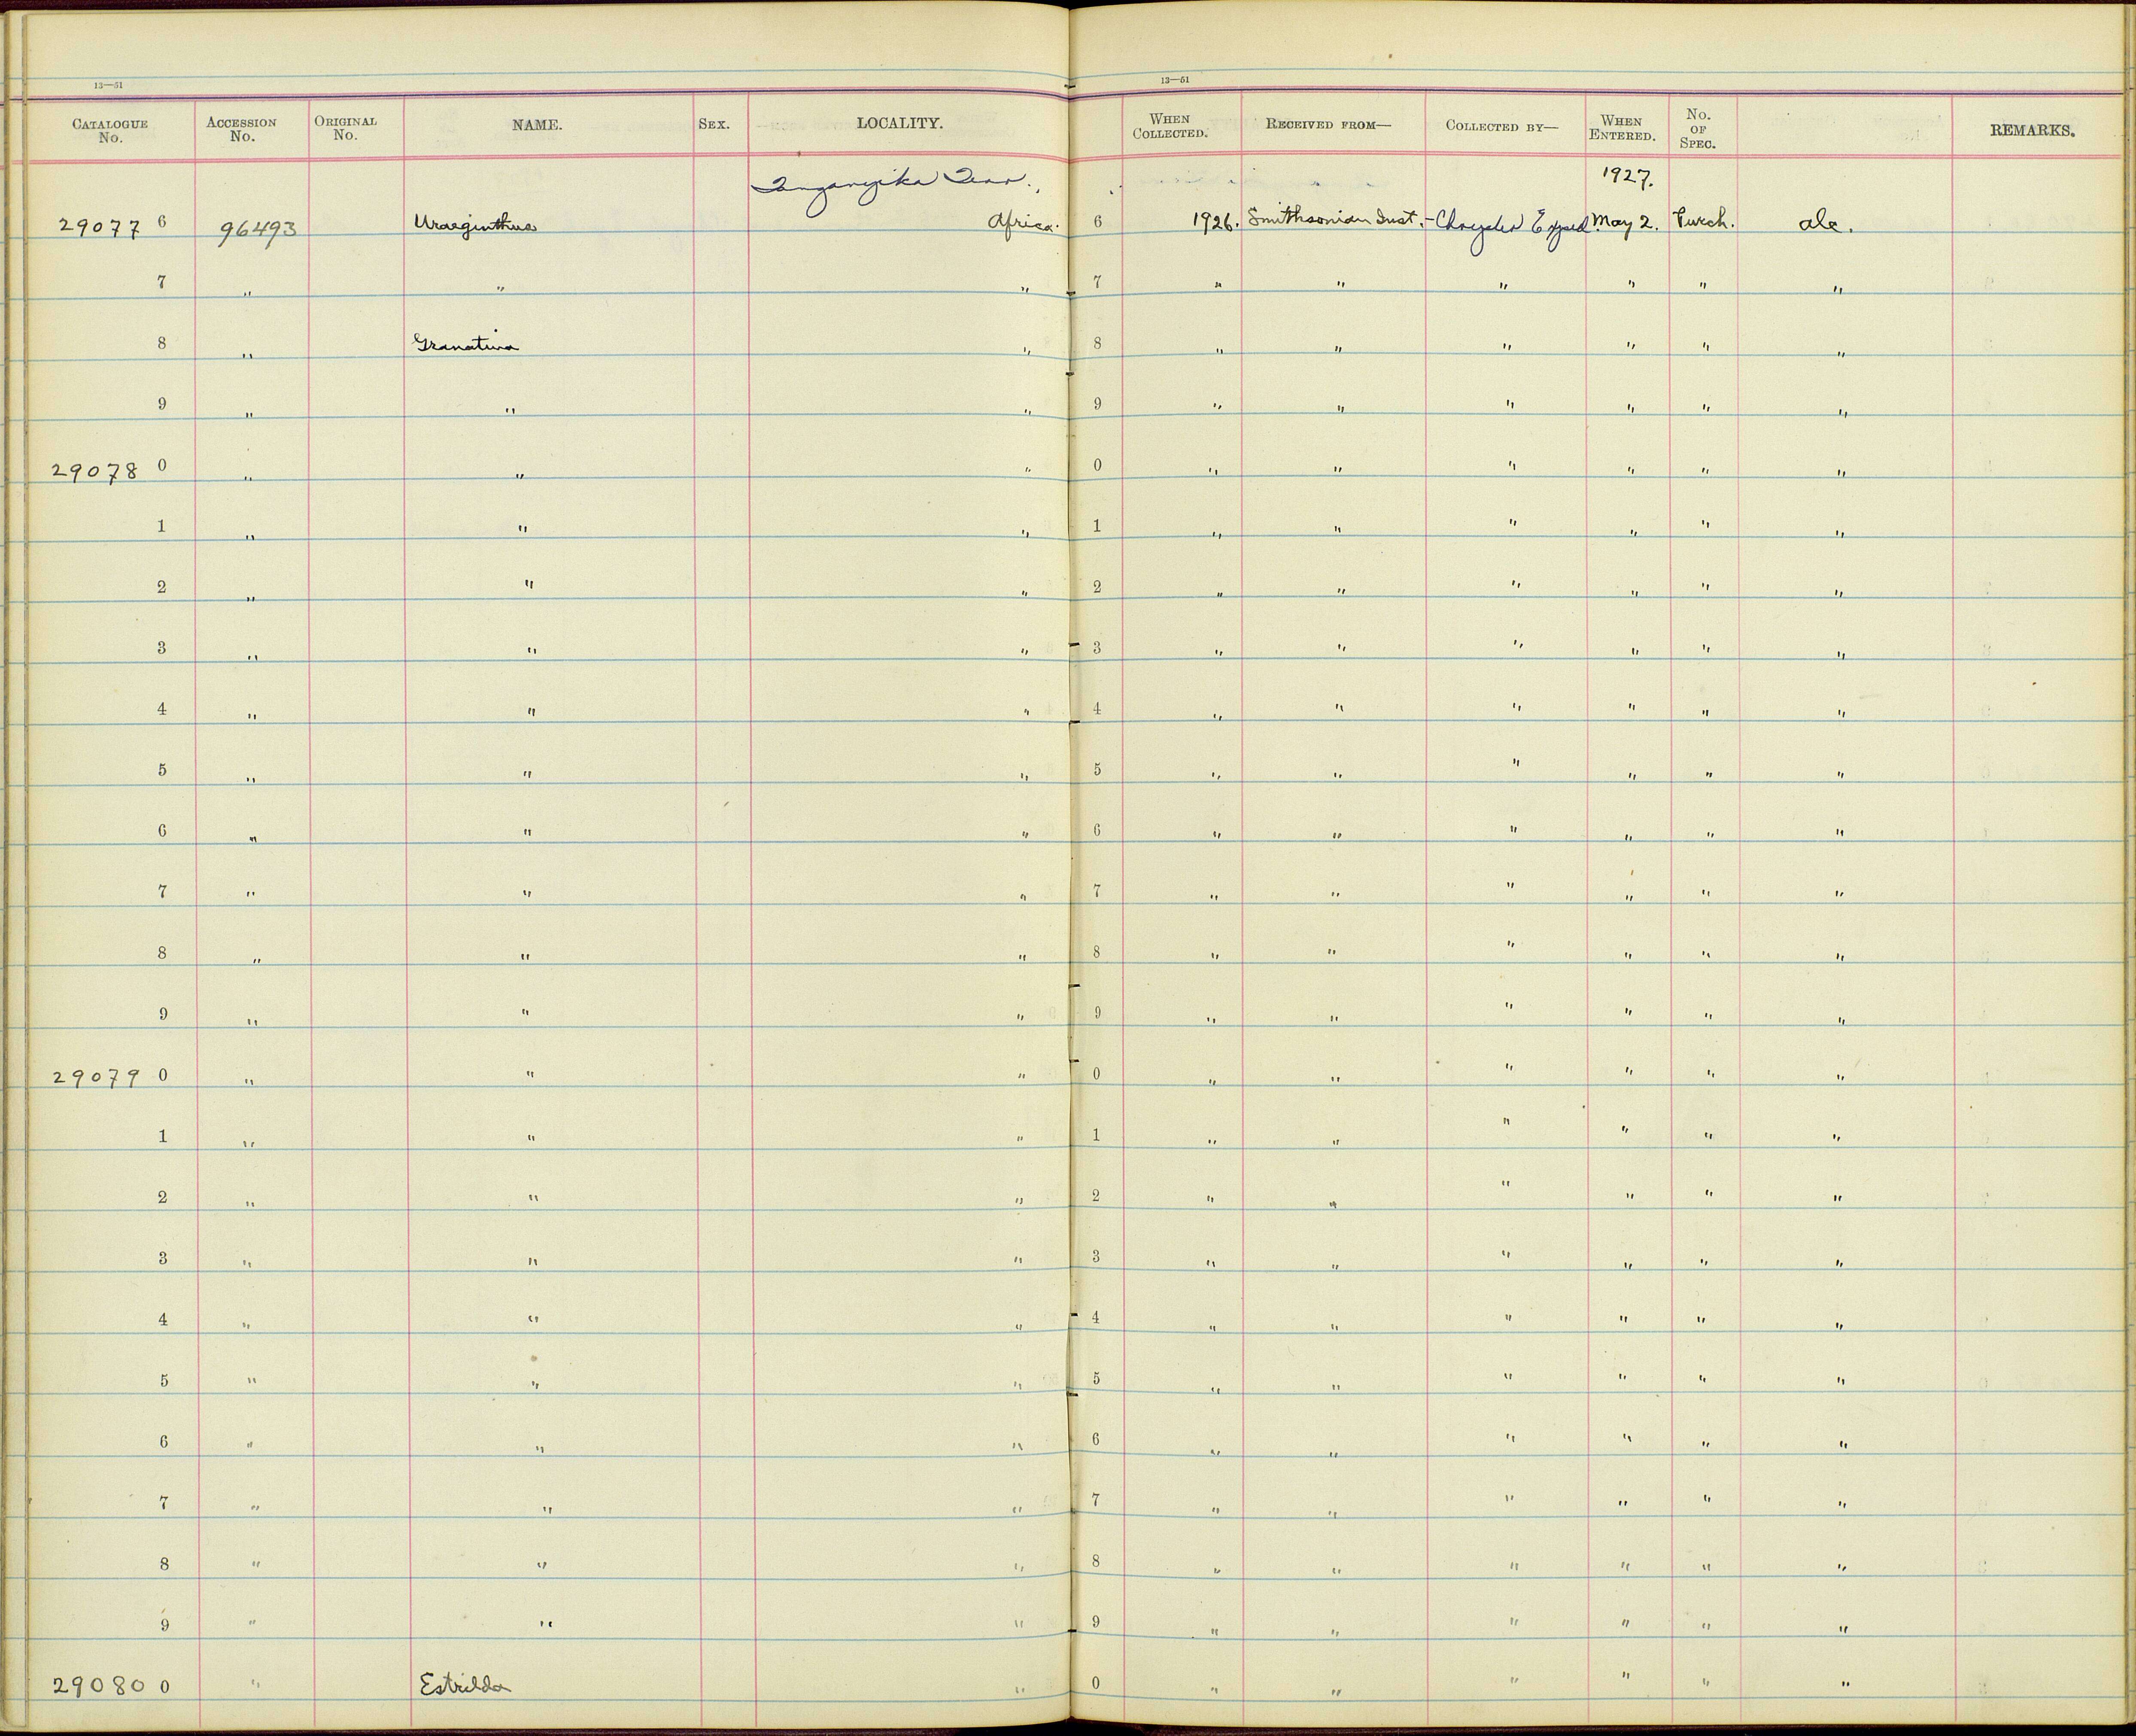 13—51
13—51
CATALOGUE No. ACCESSION No. ORIGINAL No. NAME. SEX. LOCALITY. WHEN COLLECTED. RECEIVED FROM— COLLECTED BY— WHEN ENTERED. No. OF SPEC. REMARKS.
Tanganyika Terr., 1927.
29077 6 96493 Uraeginthus Africa. 6 1926. Smithsonian Inst.- Chrysler Exped. May 2. Purch. alc.
7 " " " 7 " " " " " "
8 " Granatina " 8 " " " " " "
9 " " " 9 " " " " " "
29078 0 " " " 0 " " " " " "
1 " " " 1 " " " " " "
2 " " " 2 " " " " " "
3 " " " 3 " " " " " "
4 " " " 4 " " " " " "
5 " " " 5 " " " " " "
6 " " " 6 " " " " " "
7 " " " 7 " " " " " "
8 " " " 8 " " " " " "
9 " " " 9 " " " " " "
29079 0 " " " 0 " " " " " "
1 " " " 1 " " " " " "
2 " " " 2 " " " " " "
3 " " " 3 " " " " " "
4 " " " 4 " " " " " "
5 " " " 5 " " " " " "
6 " " " 6 " " " " " "
7 " " " 7 " " " " " "
8 " " " 8 " " " " " "
9 " " " 9 " " " " " "
29080 0 " Estrilda " 0 " " " " " "